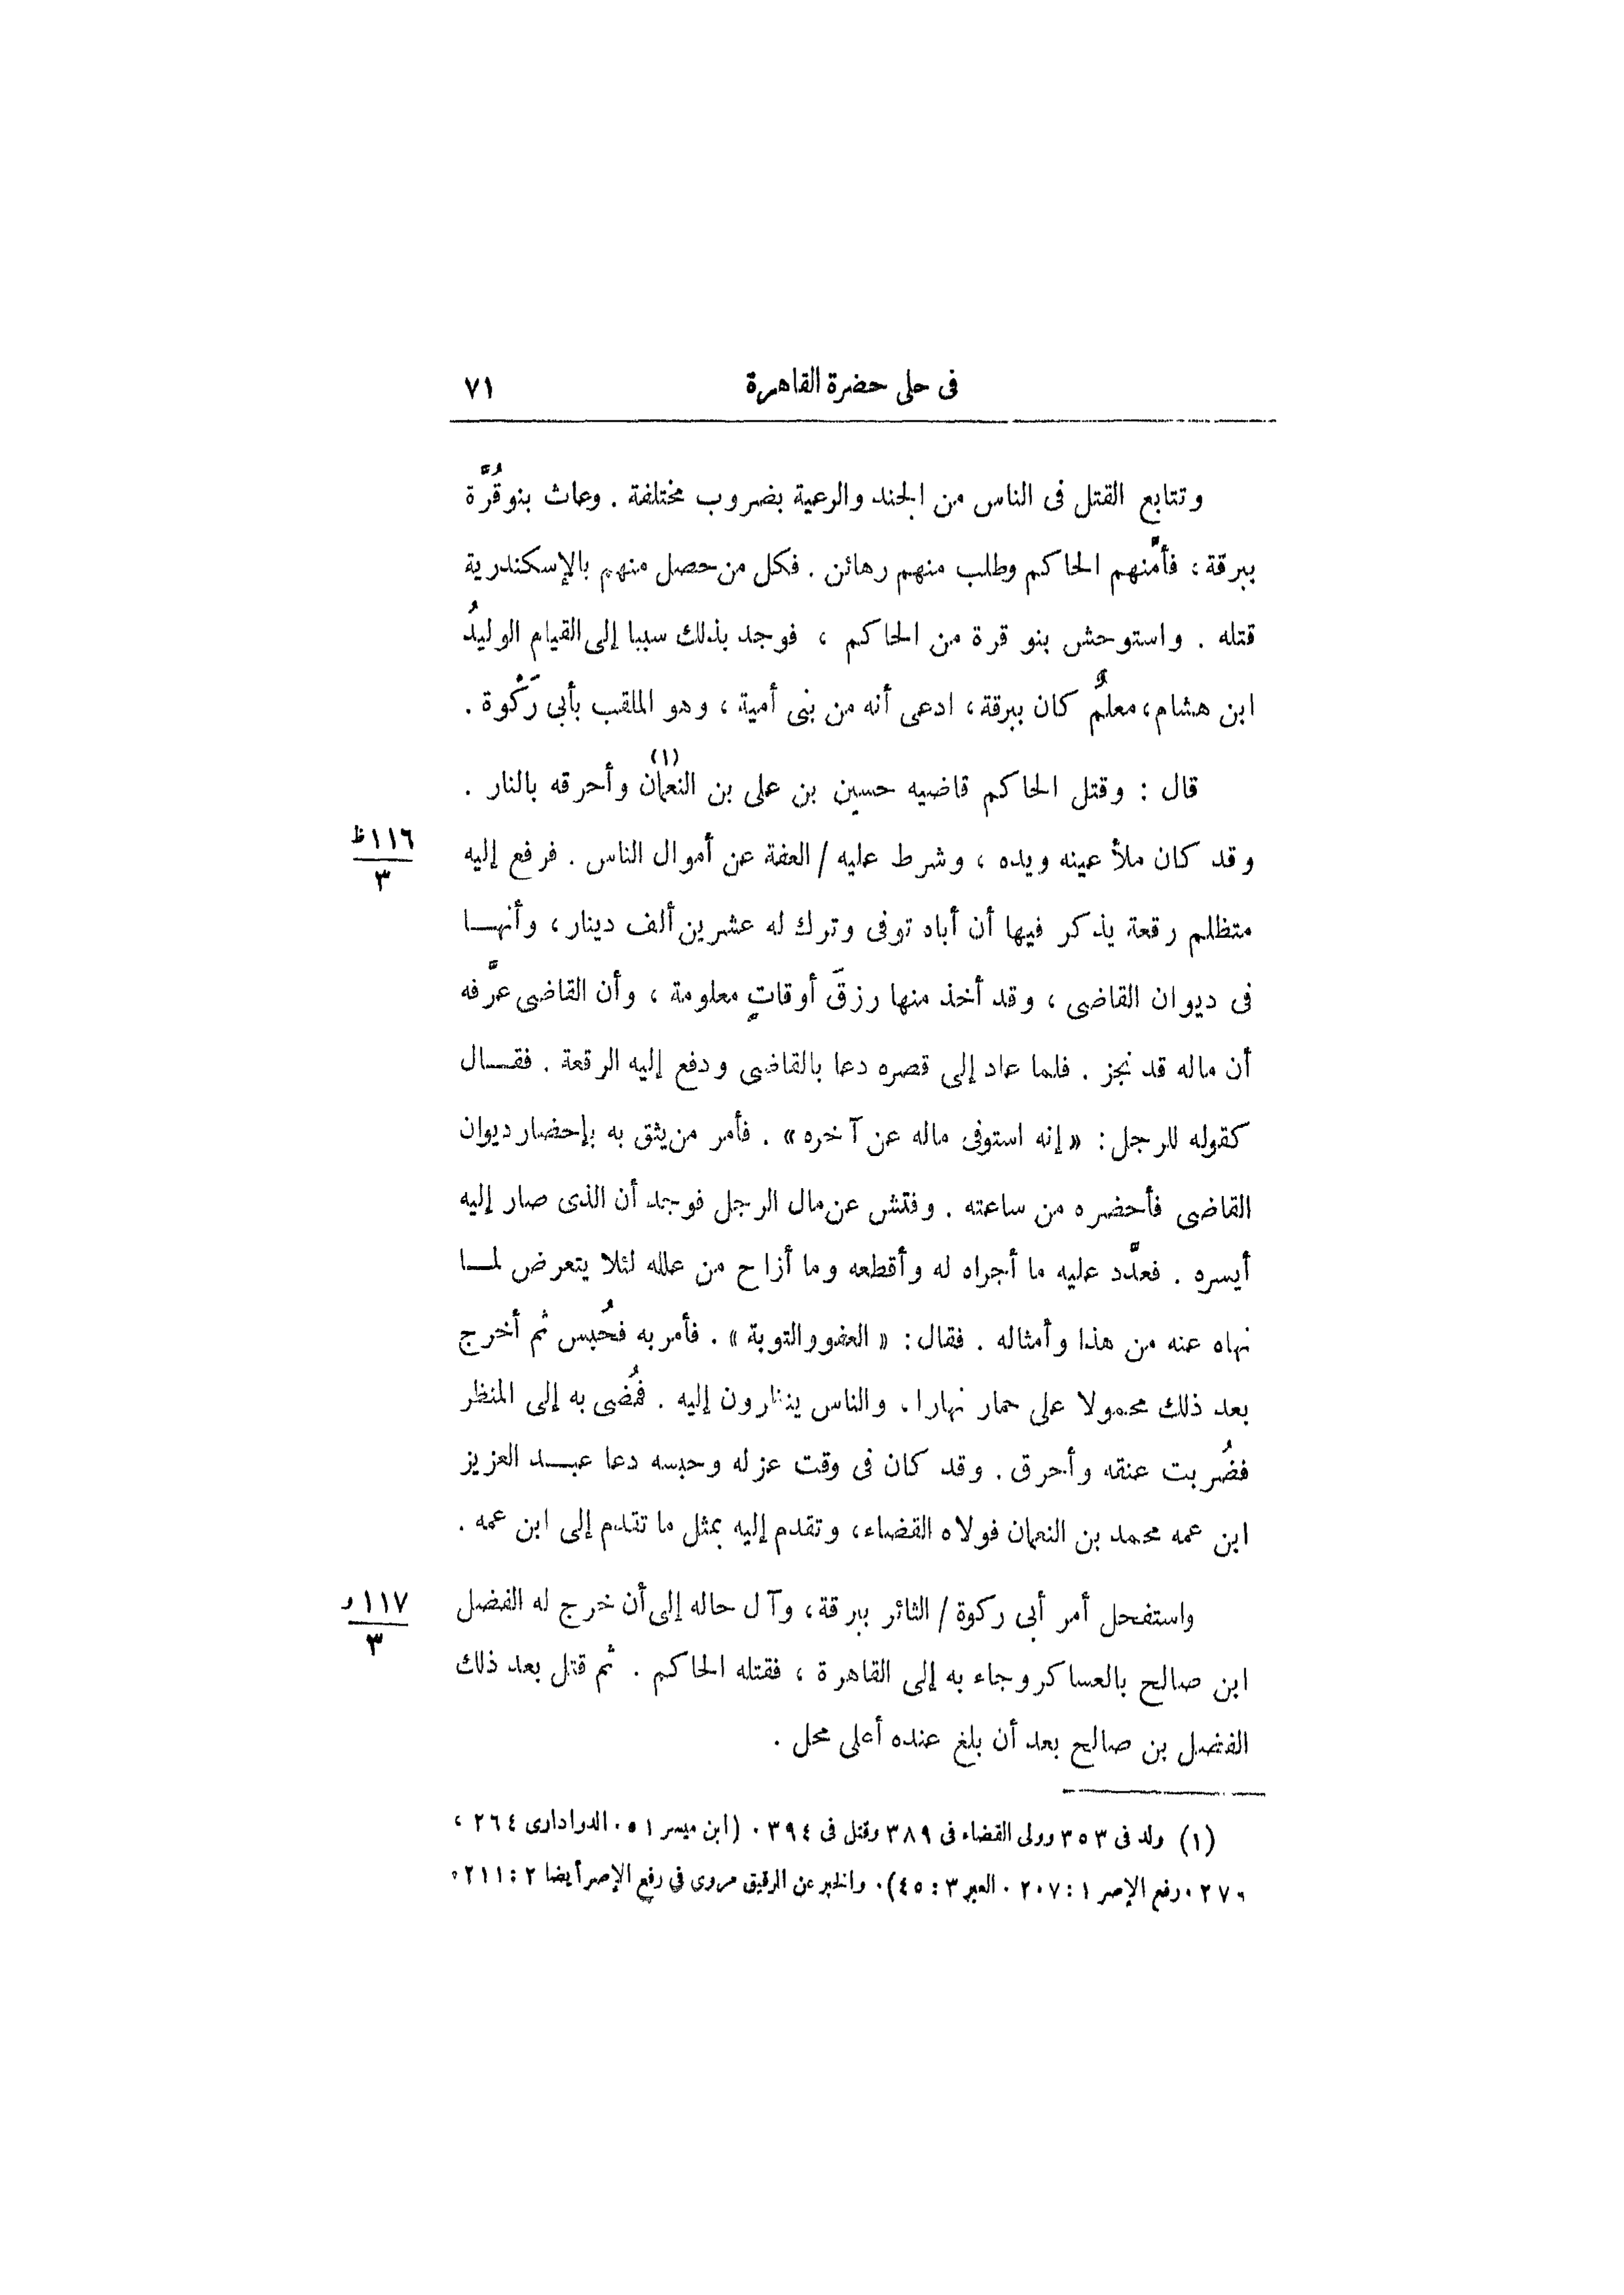 فى حلى حضرة القاهرة ٧١
وتتابع القتل فى الناس من الجند والرعية بضروب مختلفة . وعاث بنو قُرَّة
ببرقة ، فأمَّنهم الحاكم وطلب منهم رهائن . فكل من حصل منهم بالإسكندرية
قتله . واستوحش بنو قرة من الحاكم ، فوجد بذلك سببا إلى القيام الوليدُ
ابن هشام ، معلمٌ كان ببرقة ، ادعى أنه من بنى أمية ، وهو الملقب بأبى رَكْوة .
قال : وقتل الحاكم قاضيه حسين بن على بن النعمان (١) وأحرقه بالنار .
وقد كان ملأ عينه ويده ، وشرط عليه / العفة عن أموال الناس . فرفع إليه
١١٦ظ
٣
متظلم رقعة يذكر فيها أن أباه توفى وترك له عشرين ألف دينار ، وأنهـــا
فى ديوان القاضى ، وقد أخذ منها رزقَ أوقاتٍ معلومة ، وأن القاضى عرَّفه
أن ماله قد نجز . فلما عاد إلى قصره دعا بالقاضى ودفع إليه الرقعة . فقــال
كقوله للرجل : « إنه استوفى ماله عن آخره » . فأمر من يثق به بإحضار ديوان
القاضى فأحضره من ساعته . وفتش عن مال الرجل فوجد أن الذى صار إليه
أيسره . فعدَّد عليه ما أجراه له وأقطعه وما أزاح من علله لئلا يتعرض لمــا
نهاه عنه من هذا وأمثاله . فقال : « العفو والتوبة » . فأمر به فحُبس ثم أخرج
بعد ذلك محمولا على حمار نهارا ، والناس ينظرون إليه . فمُضى به إلى المنظر
فضُربت عنقه وأحرق . وقد كان فى وقت عزله وحبسه دعا عبــد العزيز
ابن عمه محمد بن النعمان فولاه القضاء ، وتقدم إليه بمثل ما تقدم إلى ابن عمه .
واستفحل أمر أبى ركوة / الثائر ببرقة ، وآل حاله إلى أن خرج له الفضل
١١٧ و
٣
ابن صالح بالعساكر وجاء به إلى القاهرة ، فقتله الحاكم . ثم قتل بعد ذلك
الفضل بن صالح بعد أن بلغ عنده أعلى محل .
(١) ولد فى ٣٥٣ وولى القضاء فى ٣٨٩ وقتل فى ٣٩٤ . (ابن ميسر ٥١ . الدوادارى ٢٦٤ ،
٢٧٠ . رفع الإصر ١ : ٢٠٧ . العبر ٣ : ٤٥) . والخبر عن الرقيق مروى فى رفع الإصر أيضا ٢ : ٢١١ .